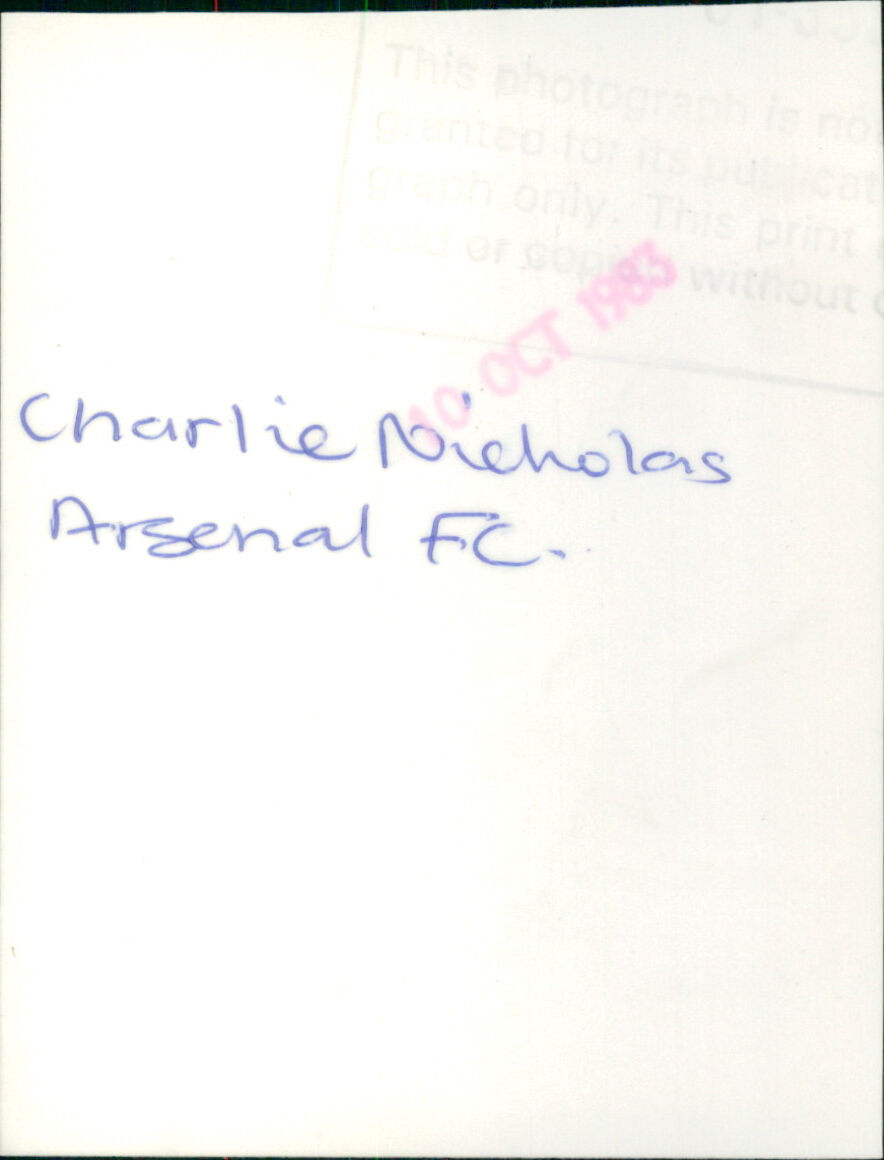 This photograph is no
granted for its publicat
graph only. This print
sold or copied without
10 OCT 1983
Charlie Nicholas
Arsenal FC.